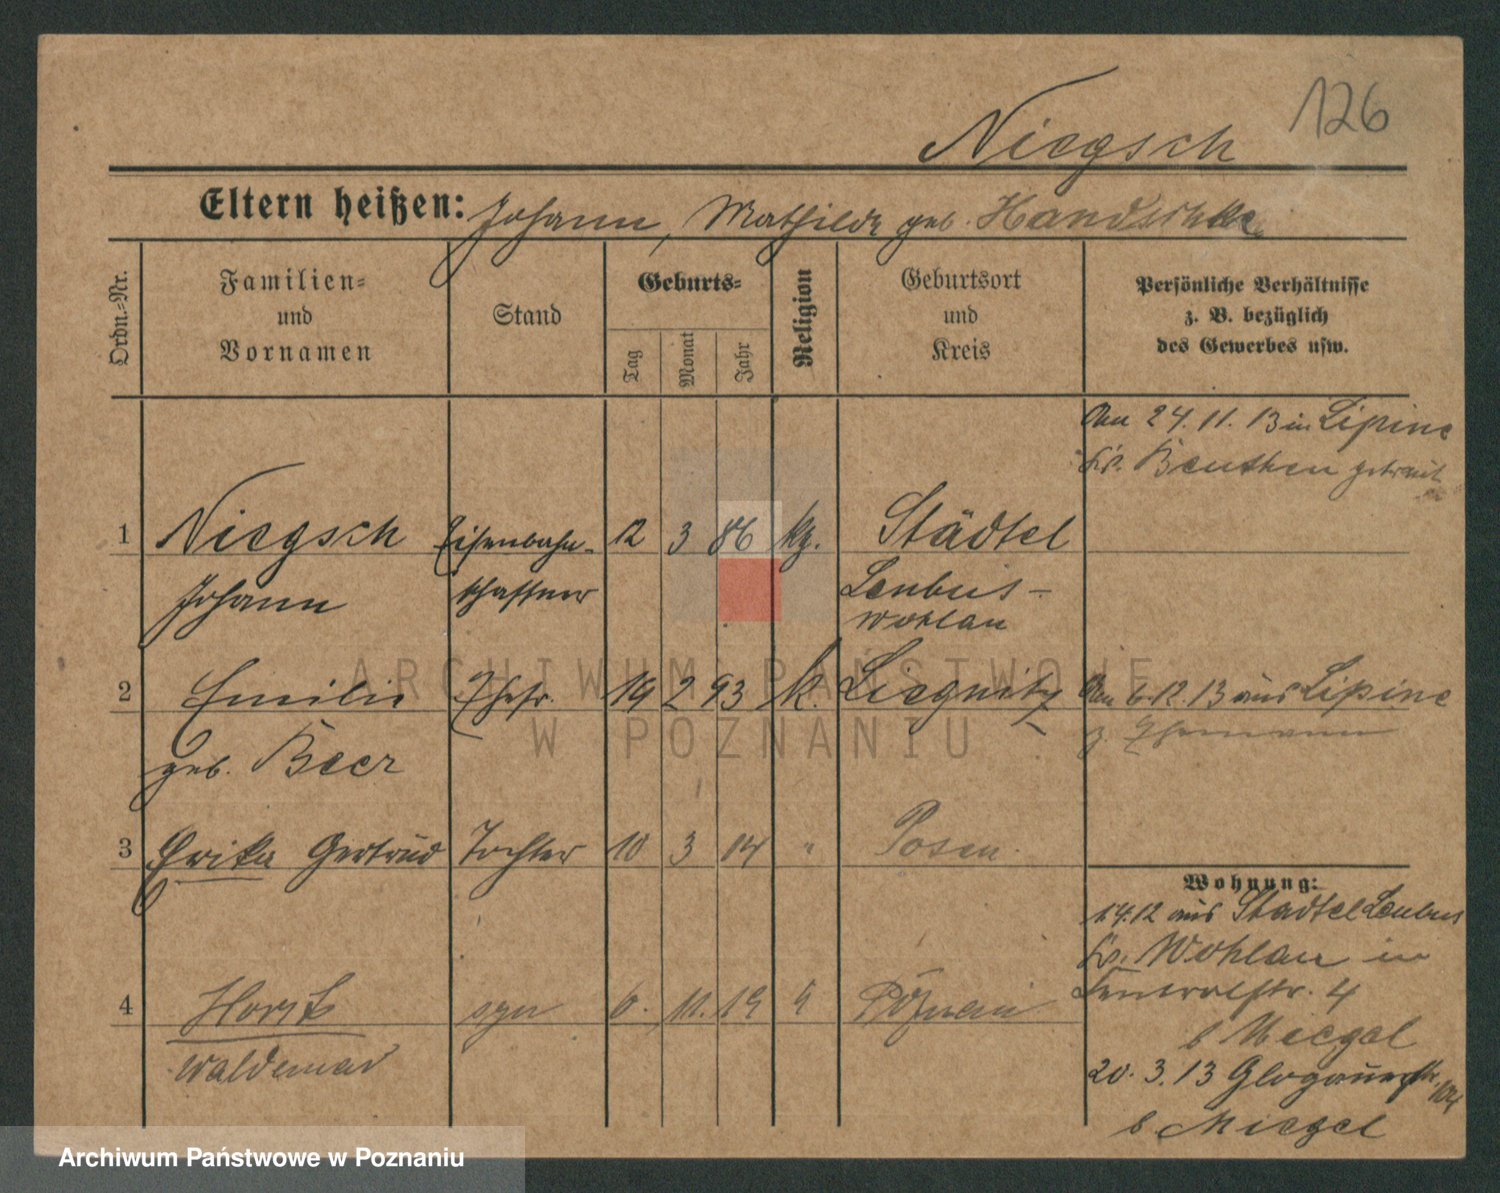 126
Niegsch
Eltern heißen: Johann, Mathilde geb. Handschke
Ordn.-Nr.
Familien-
und
Vornamen
Stand
Geburts-
Tag
Monat
Jahr
Religion
Geburtsort
und
Kreis
Persönliche Verhältnisse
z. B. bezüglich
des Gewerbes usw.
Am 24. 11. 13 in Lipine
Kr. Beuthen getraut
1 Niegsch Eisenbahn- 12 3 86 kg. Städtel
Johann schaffner Leubus-
Wohlau
2 Emilie Ehefr. 19 2 93 k. Liegnitz Am 6.12.13 aus Lipine
geb. Beer z. Ehemann
3 Erika Gertrud Tochter 10 3 14 " Posen
Wohnung:
1.4.12 aus Städtel Leubus
Kr. Wohlau in
4
b Miegel
4 Horst syn 6. 11. 19 " Poznań
Waldemar
20. 3. 13 Glogauerstr. 104
b Miegel
ARCHIWUM PAŃSTWOWE
W POZNANIU
Archiwum Państwowe w Poznaniu